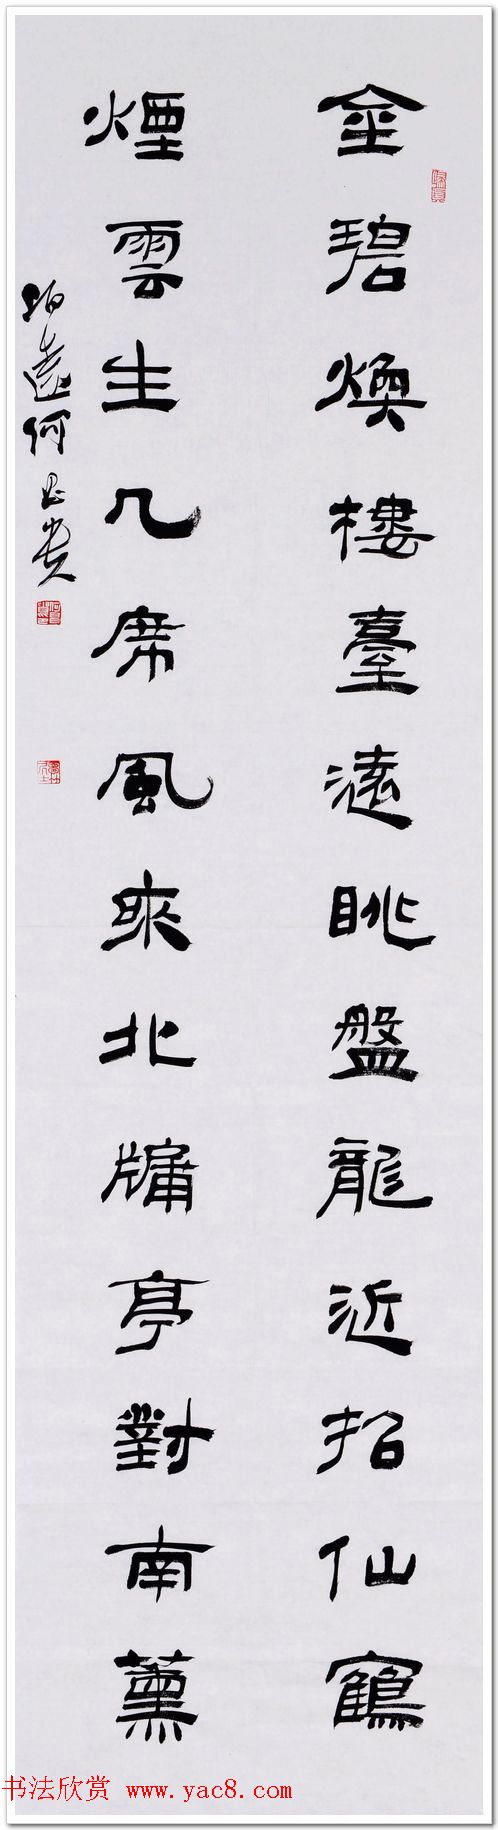 金碧煥樓臺遠眺盤龍近招仙鶴
煙雲生几席風來北牖亭對南薰
何昌貴
书法欣赏 www.yac8.com